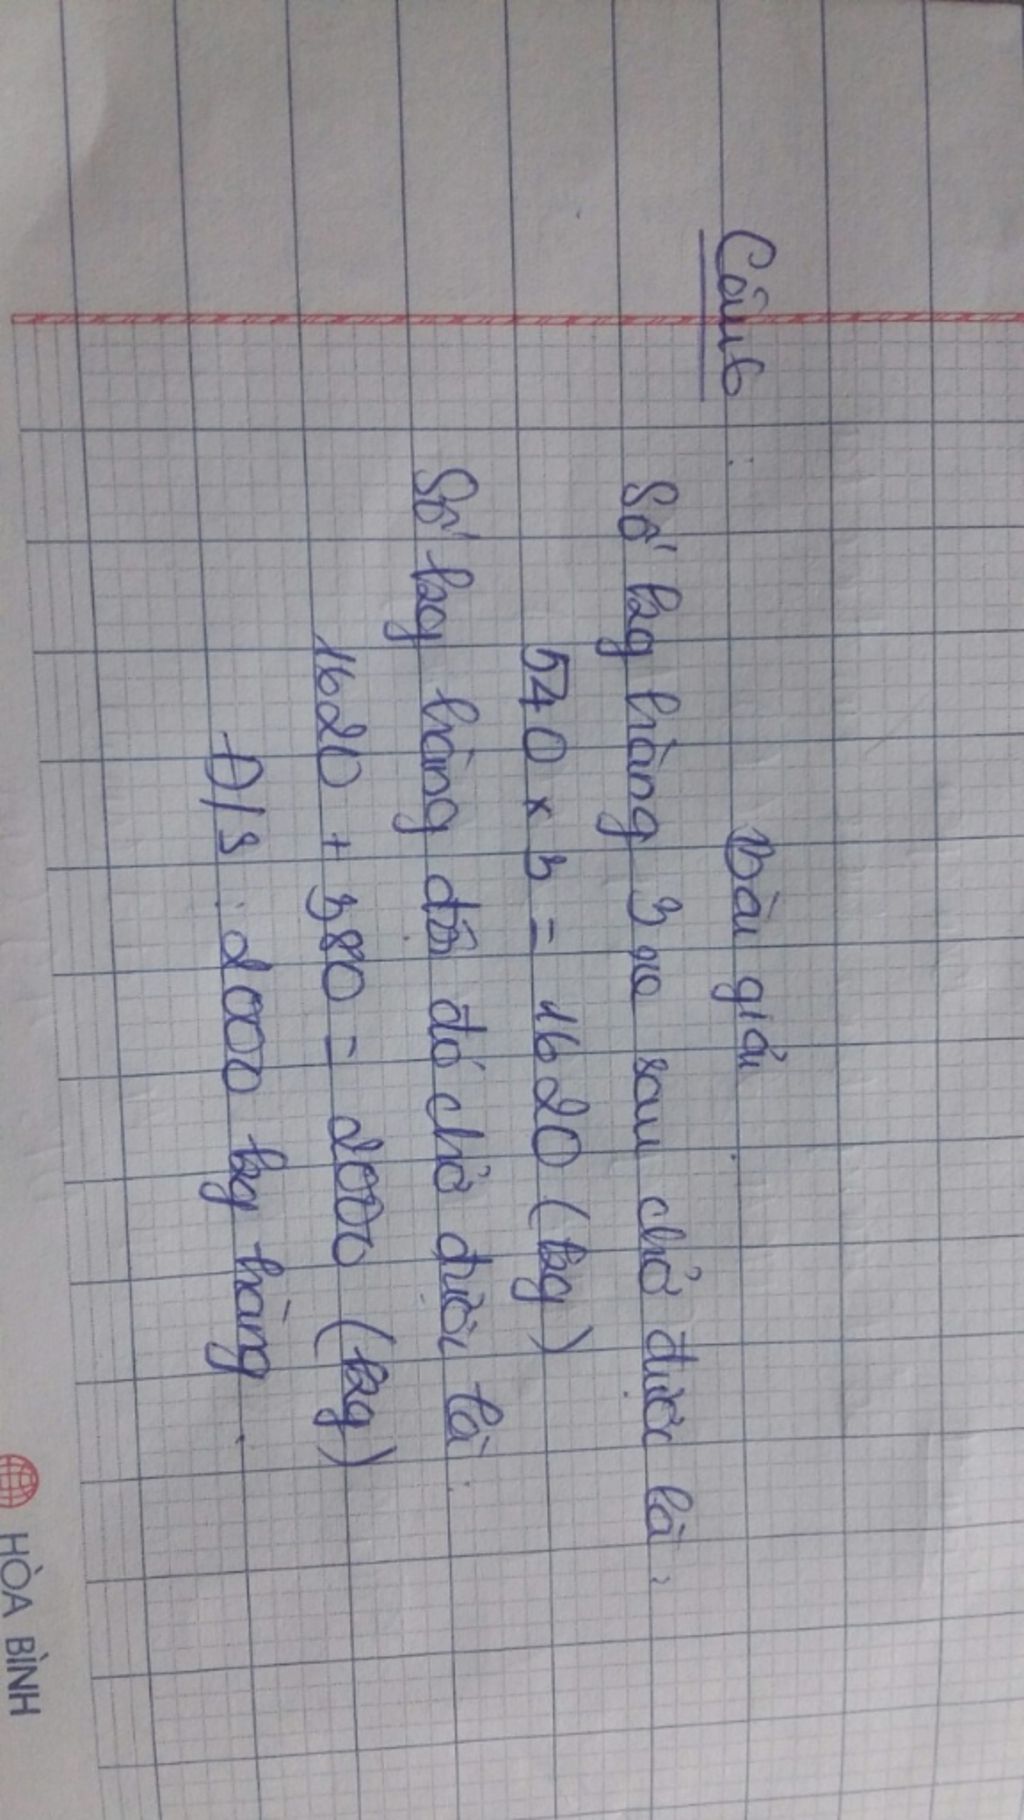 Câu 6:
Bài giải
Số kg hàng 3 xe sau chở được là:
540 × 3 = 1620 (kg)
Số kg hàng đội đó chở được là:
1620 + 380 = 2000 (kg)
Đ/S: 2000 kg hàng.
HÒA BÌNH